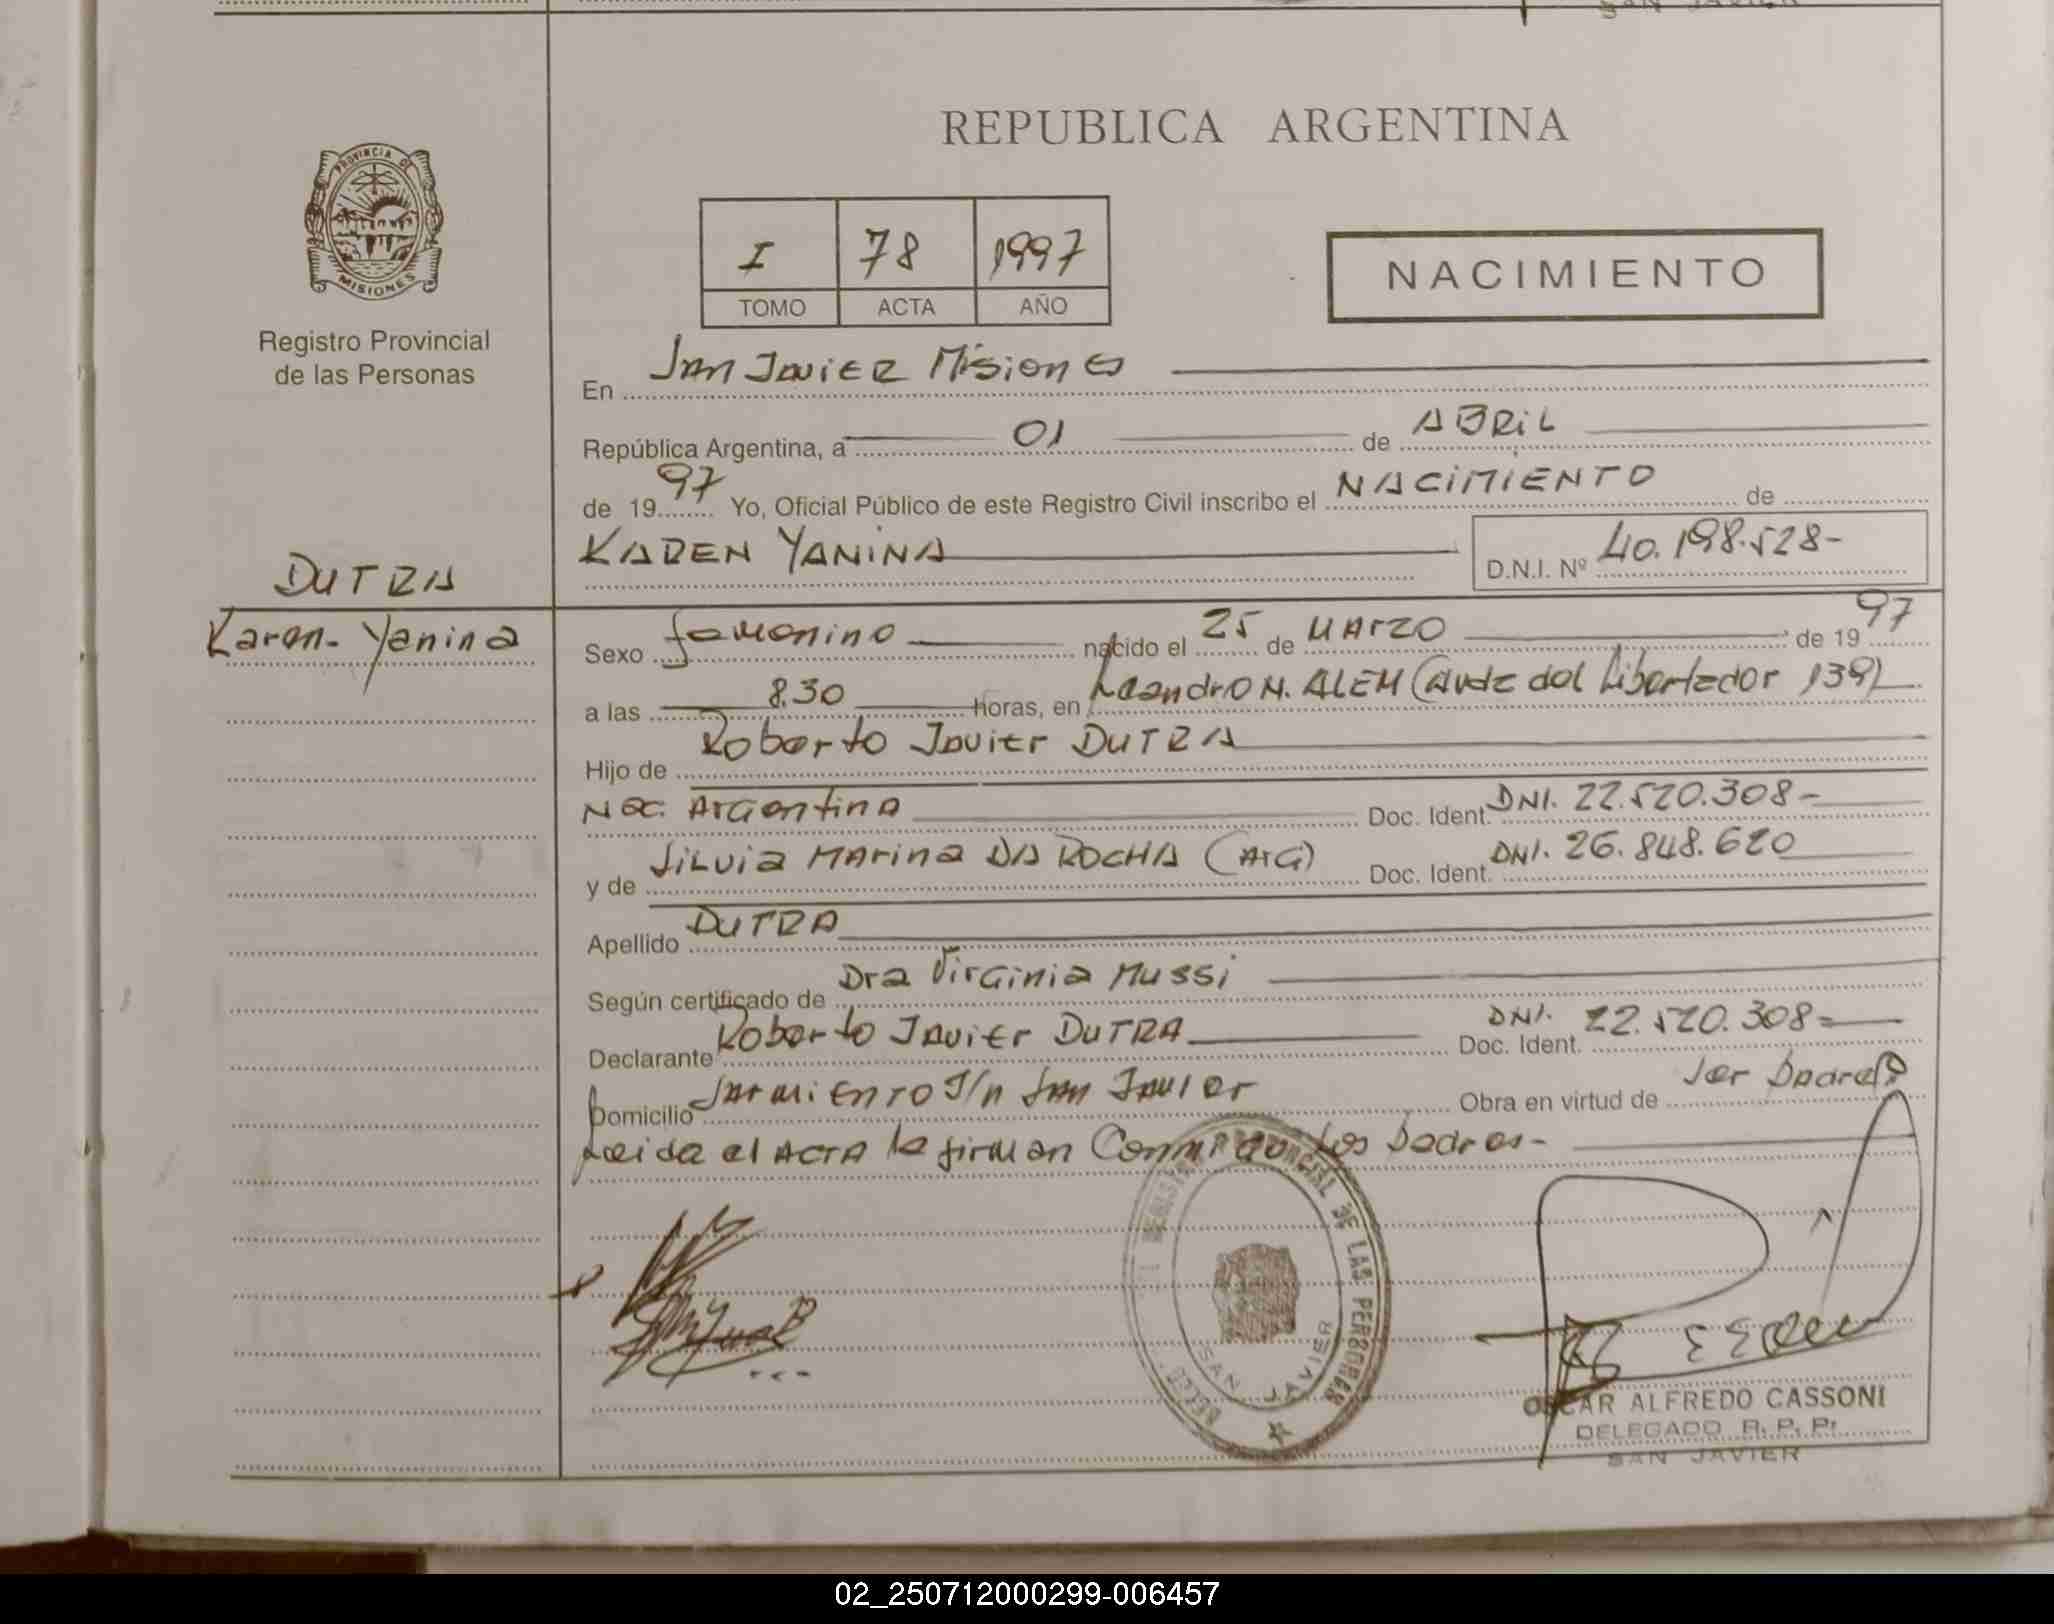 REPUBLICA ARGENTINA
PROVINCIA DE MISIONES
Registro Provincial
de las Personas
I 78 1997
TOMO ACTA AÑO
NACIMIENTO
En San Javier Misiones
República Argentina, a 01 de ABRiL
de 1997 Yo, Oficial Público de este Registro Civil inscribo el NACiMiENTO de
KAREN YANiNA D.N.I. Nº 40.198.528-
DUTRA
Karen- Yanina
Sexo femenino nacido el 25 de MArzo de 1997
a las 8.30 Horas, en Leandro N. ALEM (Avda del Libertador 139)
Hijo de Roberto Javier DUTRA
Nac. Argentina Doc. Ident. DNI. 22.520.308-
y de Silvia Marina DA ROCHA (Arg) Doc. Ident. DNI. 26.848.620
Apellido DUTRA
Según certificado de Dra Virginia Mussi
Declarante Roberto Javier DUTRA Doc. Ident. DNI. 22.520.308=
Domicilio Sarmiento S/n San Javier Obra en virtud de ser padre
Leida el ACTA la firman Conmigo los padres-
REGISTRO PROVINCIAL DE LAS PERSONAS
SAN JAVIER
OSCAR ALFREDO CASSONI
DELEGADO R. P. P.
SAN JAVIER
02_250712000299-006457